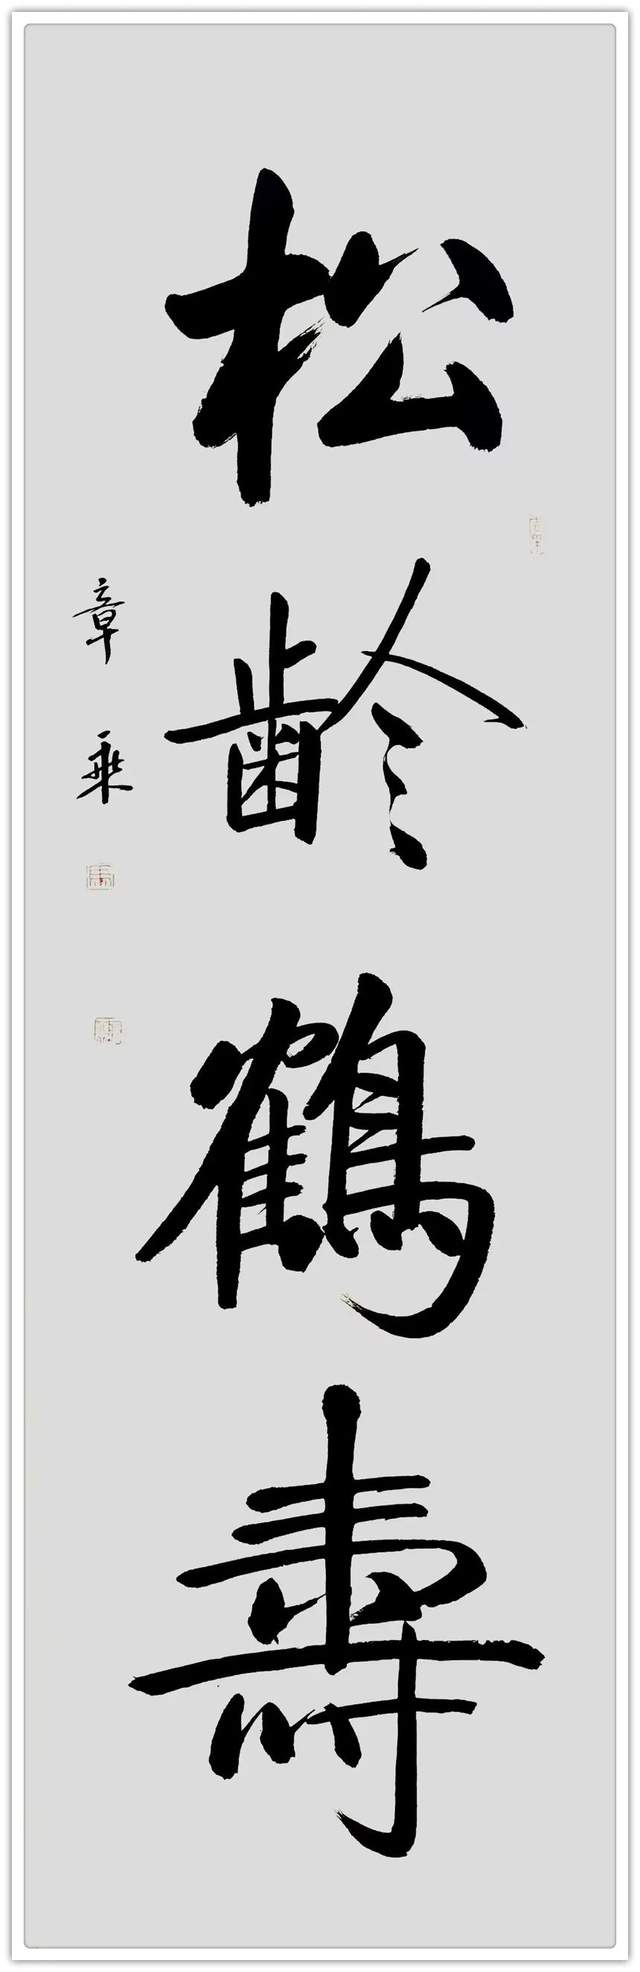 松齡鶴壽
章乘